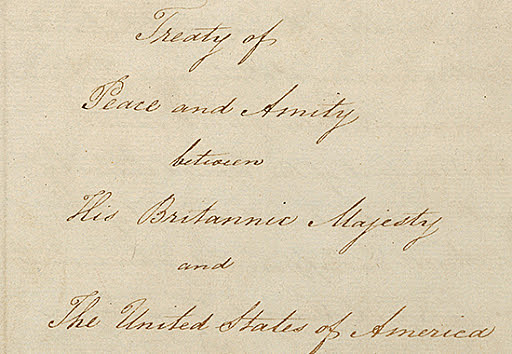 Treaty of
Peace and Amity
between
His Britannic Majesty
and
The United States of America